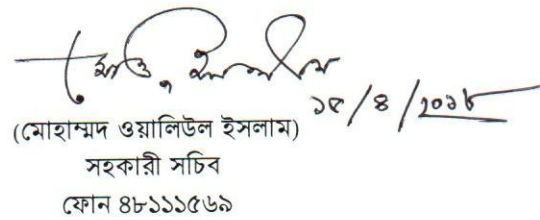 ১৫/৪/২০১৮
(মোহাম্মদ ওয়ালিউল ইসলাম)
সহকারী সচিব
ফোন ৪৮১১১৫৬৯